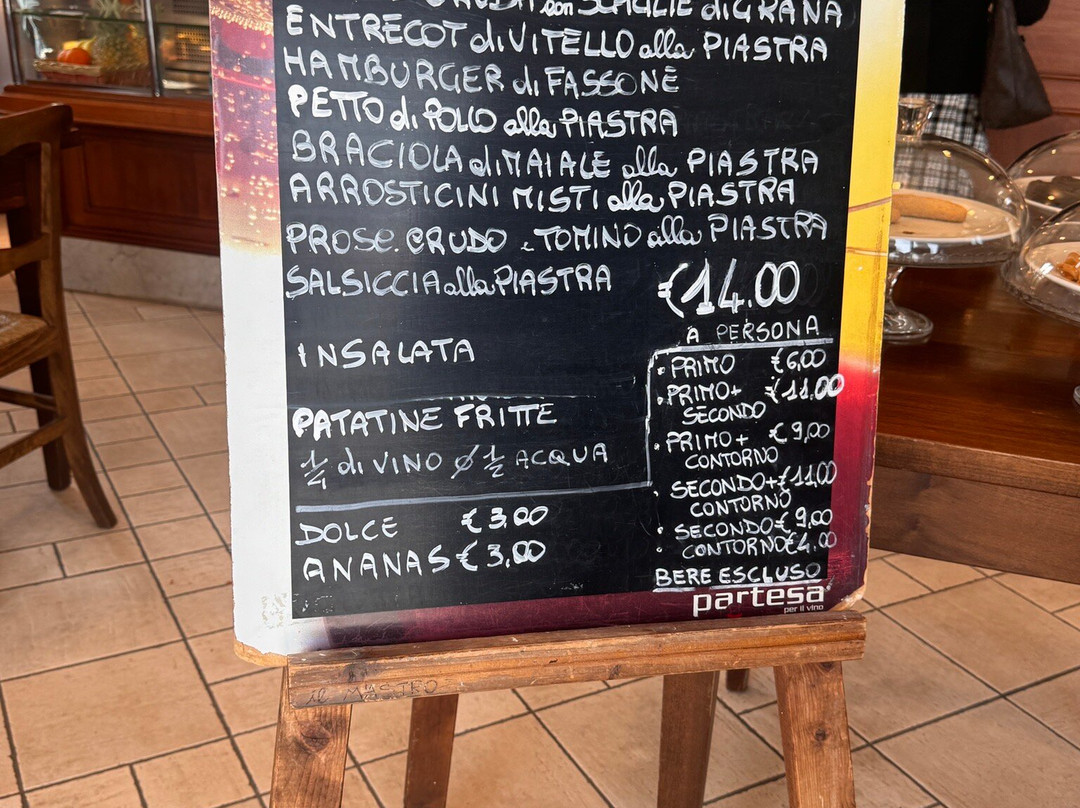 SCAGLIE di GRANA
ENTRECOT di VITELLO alla PIASTRA
HAMBURGER di FASSONE
PETTO di POLLO alla PIASTRA
BRACIOLA di MAIALE alla PIASTRA
ARROSTICINI MISTI alla PIASTRA
PROSC. CRUDO e TOMINO alla PIASTRA
SALSICCIA alla PIASTRA
€14.00
A PERSONA
INSALATA
PATATINE FRITTE
1/4 di VINO Ø 1/2 ACQUA
DOLCE €3,00
ANANAS €3,00
• PRIMO €6,00
• PRIMO+ €11,00
SECONDO
• PRIMO+ €9,00
CONTORNO
• SECONDO+ €11,00
CONTORNO
• SECONDO €9,00
• CONTORNO €4,00
BERE ESCLUSO
partesa
per il vino
il MASTRO